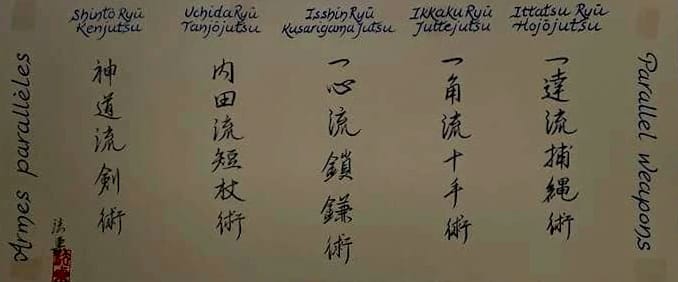 Armes parallèles
Shintō Ryū
Kenjutsu
神道流剣術
Uchida Ryū
Tanjōjutsu
内田流短杖術
Isshin Ryū
Kusarigama Jutsu
一心流鎖鎌術
Ikkaku Ryū
Juttejutsu
一角流十手術
Ittatsu Ryū
Hojōjutsu
一達流捕縄術
Parallel weapons